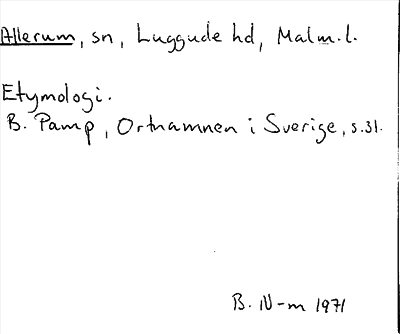 Allerum, sn, Luggude hd, Malm.l.
Etymologi.
B. Pamp, Ortnamnen i Sverige, s.31.
B. N-m 1971